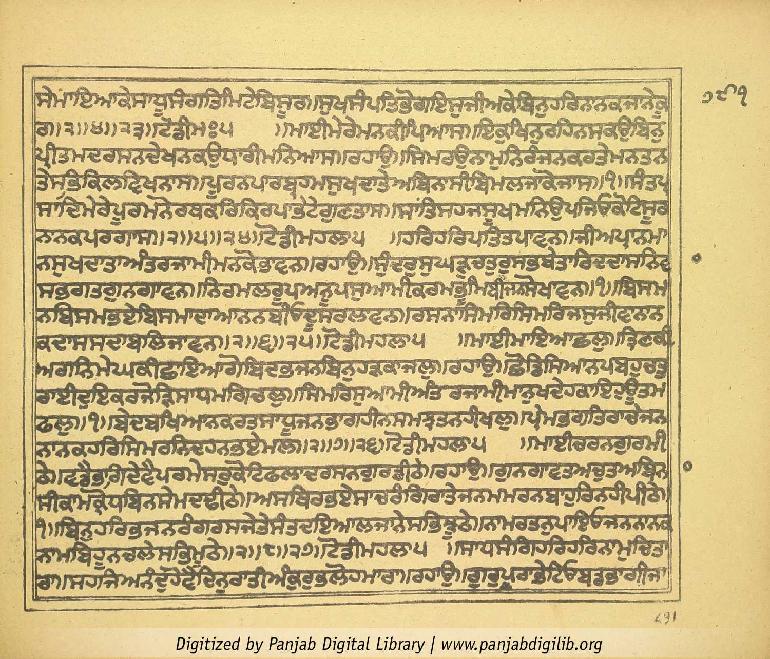 ਸੇਮਾਇਆਕੇਸਾਧੂਸੰਗਤਿਮਿਟੇਬਿਸੂਰਾ॥ਸੁਖਸੰਪਤਿਭੋਗਇਸੁਜੀਅਕੇਬਿਨੁਹਰਿਨਾਨਕਜਾਨੇਕੂ
ਰਾ॥੨॥੪॥੨੩॥ਟੋਡੀਮਃ੫ ॥ਮਾਈਮੇਰੇਮਨਕੀਪਿਆਸ॥ਇਕੁਖਿਨੁਰਹਿਨਸਕਉਬਿਨੁ
ਪ੍ਰੀਤਮਦਰਸਨਦੇਖਨਕਉਧਾਰੀਮਨਿਆਸ॥ਰਹਾਉ॥ਸਿਮਰਉਨਾਮੁਨਿਰੰਜਨਕਰਤੇਮਨਤਨ
ਤੇਸਭਿਕਿਲਵਿਖਨਾਸ॥ਪੂਰਨਪਾਰਬ੍ਰਹਮਸੁਖਦਾਤੇਅਬਿਨਾਸੀਬਿਮਲਜਾਕੋਜਾਸ॥੧॥ਸੰਤਪ੍ਰ
ਸਾਦਿਮੇਰੇਪੂਰਮਨੋਰਥਕਰਿਕਿਰਪਾਭੇਟੇਗੁਣਤਾਸ॥ਸਾਂਤਿਸਹਜਸੂਖਮਨਿਉਪਜਿਓਕੋਟਿਸੂਰ
ਨਾਨਕਪਰਗਾਸ॥੨॥੫॥੨੪॥ਟੋਡੀਮਹਲਾ੫ ॥ਹਰਿਹਰਿਪਤਿਤਪਾਵਨ॥ਜੀਅਪ੍ਰਾਨਮਾ
ਨਸੁਖਦਾਤਾਅੰਤਰਜਾਮੀਮਨਕੋਭਾਵਨ॥ਰਹਾਉ॥ਸੁੰਦਰੁਸੁਘੜੁਚਤੁਰੁਸਭਬੇਤਾਰਿਦਦਾਸਨਿਵਾ
ਸਭਗਤਗੁਨਗਾਵਨ॥ਨਿਰਮਲਰੂਪਅਨੂਪਸੁਆਮੀਕਰਮਭੂਮਿਬੀਜਨਸੋਖਾਵਨ॥੧॥ਬਿਸਮ
ਨਬਿਸਮਭਏਬਿਸਮਾਦਾਆਨਨਬੀਓਦੂਸਰਲਾਵਨ॥ਰਸਨਾਸਿਮਰਿਸਿਮਰਿਜਸੁਜੀਵਾਨਾਨ
ਕਦਾਸਸਦਾਬਲਿਜਾਵਨ॥੨॥੬॥੨੫॥ਟੋਡੀਮਹਲਾ੫ ॥ਮਾਈਮਾਇਆਛਲੁ॥ਤ੍ਰਿਣਕੀ
ਅਗਨਿਮੇਘਕੀਛਾਇਆਗੋਬਿਦਭਜਨਬਿਨੁਹੜਕਾਜਲੁ॥ਰਹਾਉ॥ਛੋਡਿਸਿਆਨਪਬਹੁਚਤੁ
ਰਾਈਦੁਇਕਰਜੋੜਿਸਾਧਮਗਿਚਲੁ॥ਸਿਮਰਿਸੁਆਮੀਅੰਤਰਜਾਮੀਮਾਨੁਖਦੇਹਕਾਇਹੁਊਤਮ
ਫਲੁ॥੧॥ਬੇਦਬਖਿਆਨਕਰਤਸਾਧੂਜਨਭਾਗਹੀਨਸਮਝਤਨਹੀਖਲੁ॥ਪ੍ਰੇਮਭਗਤਿਰਾਚੇਜਨ
ਨਾਨਕਹਰਿਸਿਮਰਨਿਦਹਨਭਏਮਲ॥੨॥੭॥੨੬॥ਟੋਡੀਮਹਲਾ੫ ॥ਮਾਈਚਰਨਗੁਰਮੀ
ਠੇ॥ਵਡੈਭਾਗਿਦੇਵੈਪਰਮੇਸਰੁਕੋਟਿਫਲਾਦਰਸਨਗੁਰਡੀਠੇ॥ਰਹਾਉ॥ਗੁਨਗਾਵਤਅਚੁਤਅਬਿਨਾ
ਸੀਕਾਮਕ੍ਰੋਧਬਿਨਸੇਮਦਢੀਠੇ॥ਅਸਥਿਰਭਏਸਾਚਰੰਗਿਰਾਤੇਜਨਮਮਰਨਬਾਹੁਰਿਨਹੀਪੀਠੇ॥
੧॥ਬਿਨੁਹਰਿਭਜਨਰੰਗਰਸਜੇਤੇਸੰਤਦਇਆਲਜਾਨੇਸਭਿਝੂਠੇ॥ਨਾਮਰਤਨੁਪਾਇਓਜਨਨਾਨਕ
ਨਾਮਬਿਹੂਨਚਲੇਸਭਿਮੂਠੇ॥੨॥੮॥੨੭॥ਟੋਡੀਮਹਲਾ੫ ॥ਸਾਧਸੰਗਿਹਰਿਹਰਿਨਾਮੁਚਿਤਾ
ਰਾ॥ਸਹਜਿਅਨੰਦੁਹੋਵੈਦਿਨੁਰਾਤੀਅੰਕੁਰੁਭਲੋਹਮਾਰਾ॥ਰਹਾਉ॥ਗੁਰੁਪੂਰਾਭੇਟਿਓਬਡਭਾਗੀਜਾ
291
Digitized by Panjab Digital Library | www.panjabdigilib.org